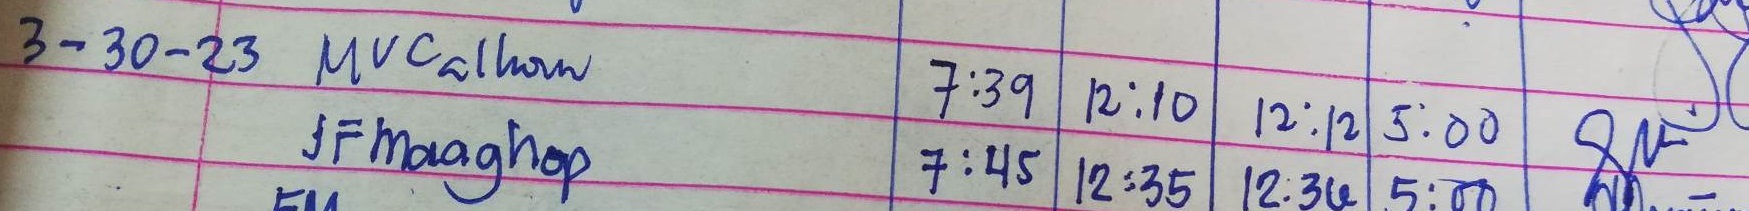 3-30-23 MV Calhoun 7:39 12:10 12:12 5:00
JF Maaghop 7:45 12:35 12:36 5:00
EM